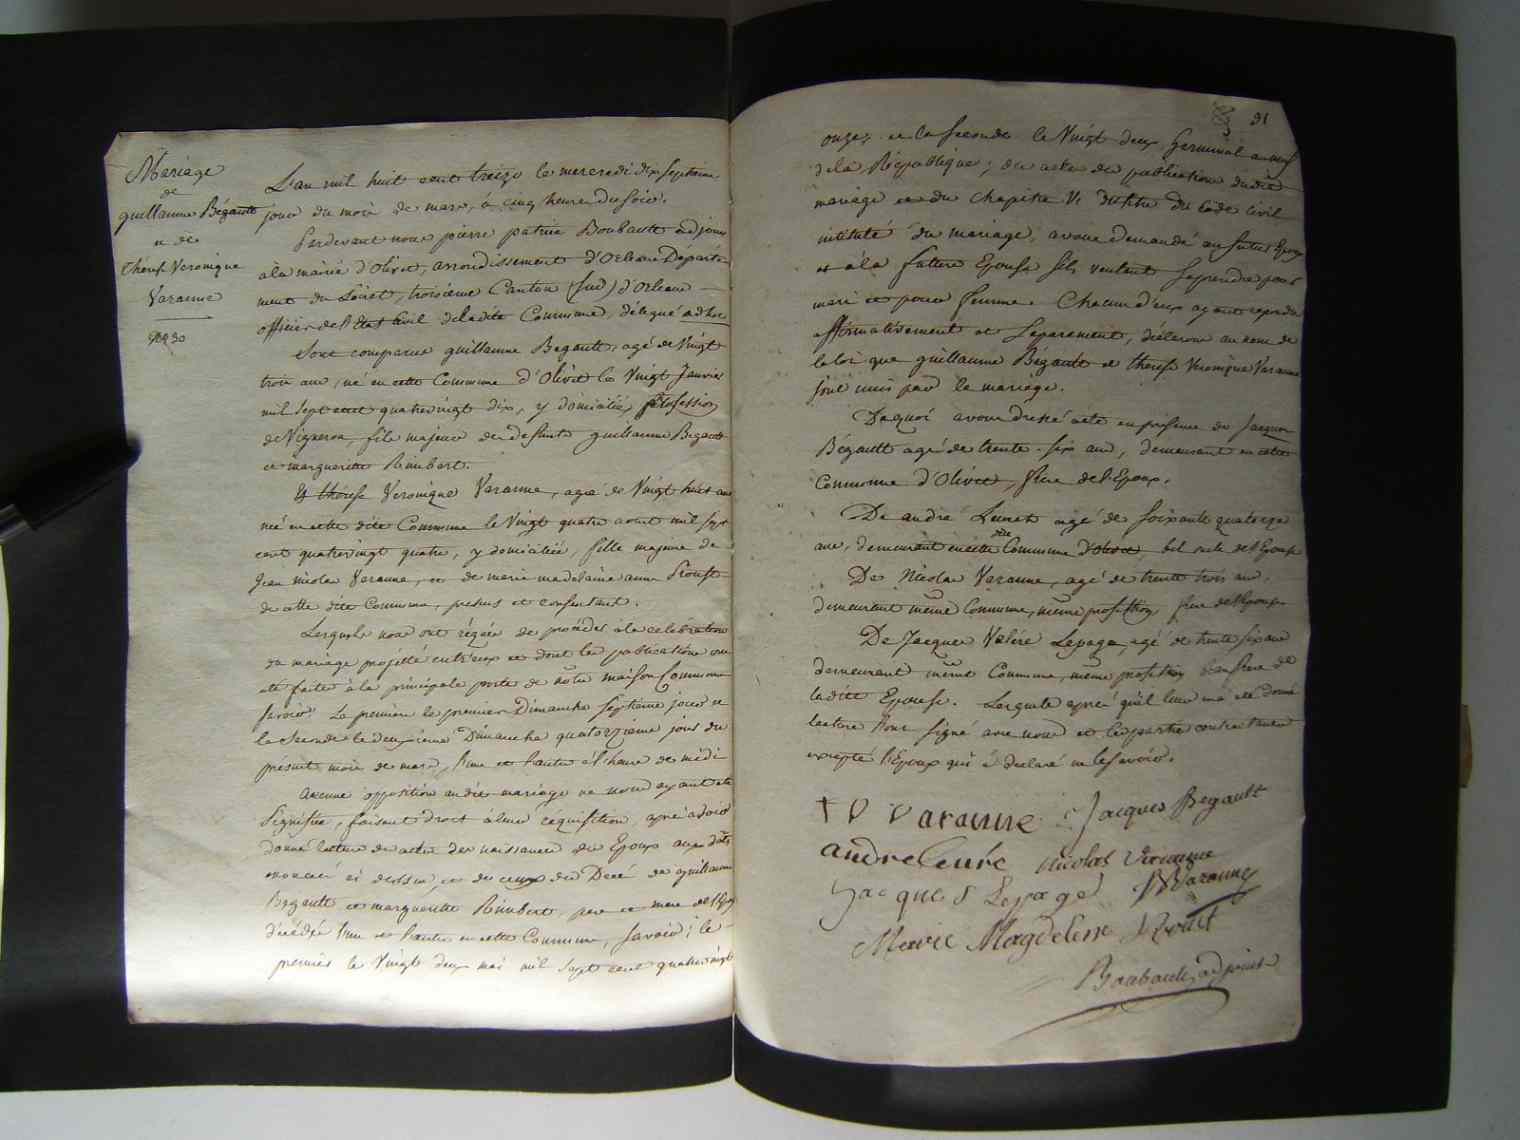 Mariage
de
guillaume Bégault
et de
thérèse Veronique
Varanne
L'an mil huit cent treize le mercredi dix septieme
jour du mois de mars, à cinq heures du soir.
Pardevant nous pierre patrice Boubault adjoint
à la mairie d'Olivet, arrondissement d'Orleans Départe-
ment du Loiret, troisième Canton (sud) d'Orleans
officier de l'Etat Civil de ladite Commune, délégué ad hoc
Sont comparus guillaume Begault, agé de Vingt
trois ans, né en cette Commune d'Olivet le Vingt Janvier
mil sept cent quatrevingt dix, y domicilié, profession
de Vigneron, fils majeur de defunts guillaume Begault
et marguerite Rimbert.
Et thérèse Veronique Varanne, agée de Vingt huit ans
née en cette dite Commune le Vingt quatre aout mil sept
cent quatrevingt quatre, y domiciliée, fille majeure de
Jean nicolas Varanne, et de marie madelaine anne Proust
de cette dite Commune, présens et consentant.
Lesquels nous ont réquis de procéder à la célébration
du mariage projetté entr'eux et dont les publications ont
été faites à la principale porte de notre maison Commune
savoir: La premiere le premier Dimanche septième jour et
la seconde le deuxieme Dimanche quatorzieme jour du
présent mois de mars, l'une et l'autre à l'heure de midi
Aucune opposition audit mariage ne nous ayant été
signifiée, faisant droit à leur réquisition, après avoir
donné lecture des actes des naissances des Epoux aux dates
énoncées ci dessus, et de ceux des Décès de guillaume
Begault et marguerite Rimbert, pere et mere de l'Epoux
décédés l'un et l'autre en cette Commune, savoir; le
premier le Vingt deux mai mil sept cent quatrevingt
91
onze, et la seconde le Vingt deux germinal an neuf
de la République; des actes de publication dudit
mariage et du chapitre VI du titre du Code Civil
intitulé du mariage, avons demandé au futur Epoux
et à la future Epouse s'ils veulent se prendre pour
mari et pour femme. Chacun d'eux ayant repondu
affirmativement et séparément, déclarons au nom de
la loi que guillaume Bégault et thérèse Véronique Varanne
sont unis par le mariage.
De quoi avons dressé acte en présence de Jacques
Bégault agé de trente-six ans, demeurant en cette
Commune d'Olivet, frère de l'Epoux.
De andré agé de soixante quatorze
ans, demeurant en cette dite Commune d'Olivet, bel oncle de l'Epouse
De Nicolas Varanne, agé de trente trois ans,
demeurant même Commune, même profession frere de l'Epouse
De Jacques Valère Lepage, agé de trente six ans
demeurant même Commune, même profession beau frere de
ladite Epouse. Lesquels après qu'il leur en a été donné
lecture l'ont signé avec nous et les parties contractantes
excepté l'Epoux qui a déclaré ne le savoir.
t V Varanne Jacques Begault
andre nicolas Varanne
Jacques Lepage Varanne
Marie Magdelene Proust
Boubault, adjoint